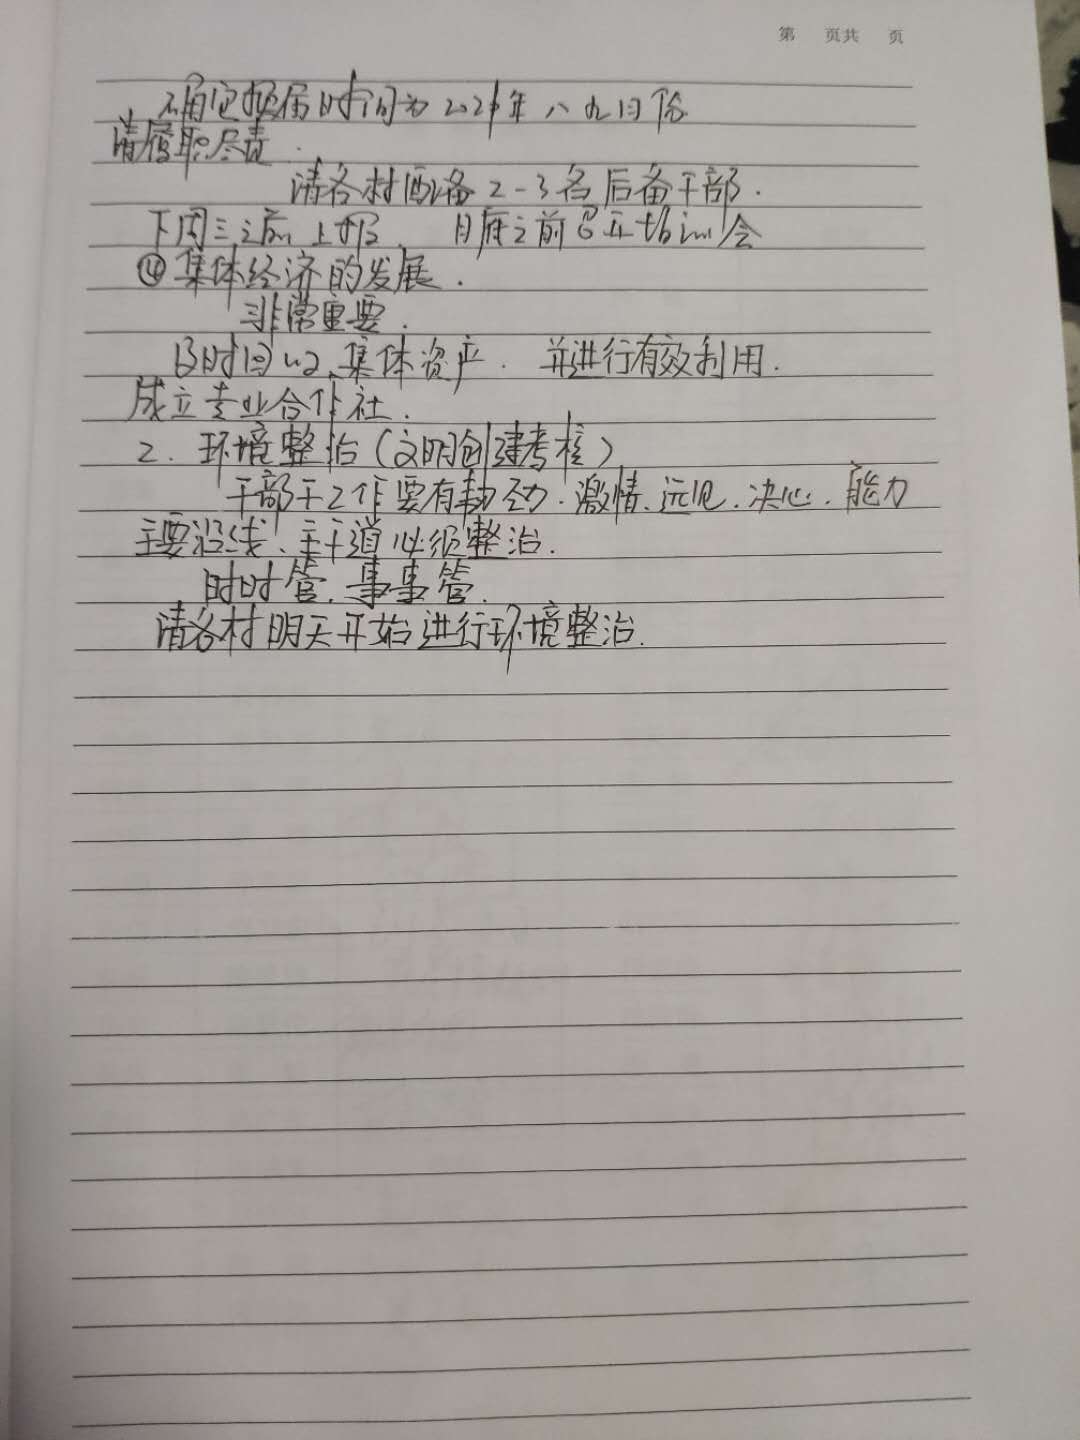 第 页共 页
确定换届时间为 年八九月份
请履职尽责.
请各村配备2-3名后备干部.
下周三之前上报. 月底之前召开培训会
④集体经济的发展.
非常重要.
集体资产. 并进行有效利用.
成立专业合作社.
2. 环境整治(文明创建考核)
干部干工作要有动力.激情.远见.决心.能力
主要沿线、主干道必须整治.
时时管.事事管.
请各村明天开始进行环境整治.